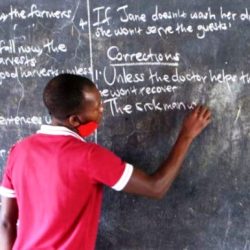 the farmers
fall now, the
harvests
good harvests unless
entences u
If Jane doesn't wash her
she won't serve the guests
Corrections
Unless the doctor helps th
he won't recover
The sick man w